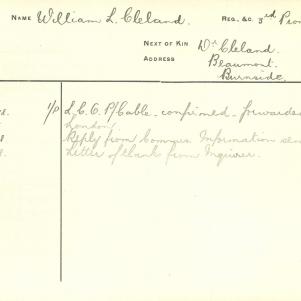 NAME William L. Cleland. REG., &C. 3rd Pion
NEXT OF KIN Dr Cleland.
ADDRESS Beaumont.
Burnside.
1/P L.C.O. P/Cable - confirmed - forwarded
London
Reply from Commun. Information sen
Letter of thank from Inquirer.